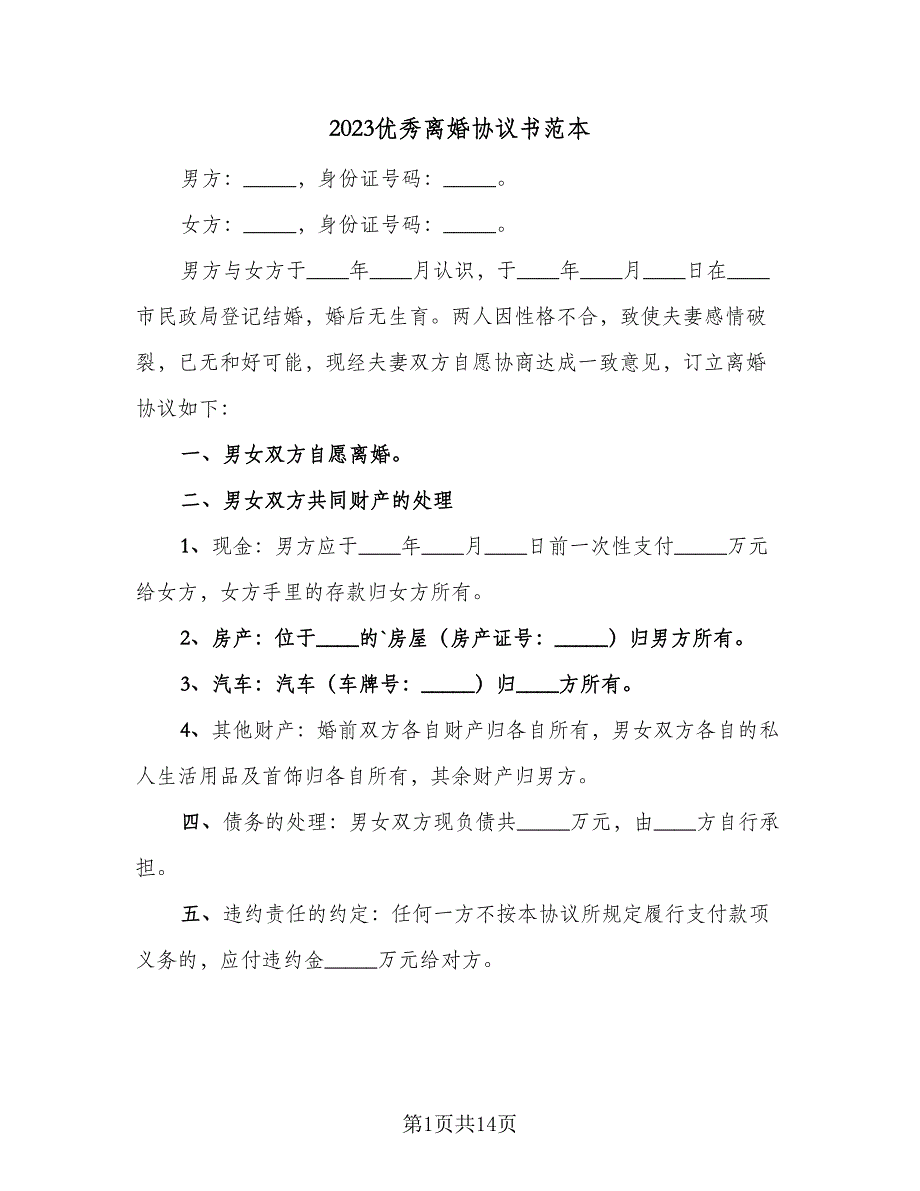 2023优秀离婚协议书范本
男方：_____，身份证号码：_____。
女方：_____，身份证号码：_____。
男方与女方于____年____月认识，于____年____月____日在____
市民政局登记结婚，婚后无生育。两人因性格不合，致使夫妻感情破
裂，已无和好可能，现经夫妻双方自愿协商达成一致意见，订立离婚
协议如下：
一、男女双方自愿离婚。
二、男女双方共同财产的处理
1、现金：男方应于____年____月____日前一次性支付_____万元
给女方，女方手里的存款归女方所有。
2、房产：位于____的`房屋（房产证号：_____）归男方所有。
3、汽车：汽车（车牌号：_____）归____方所有。
4、其他财产：婚前双方各自财产归各自所有，男女双方各自的私
人生活用品及首饰归各自所有，其余财产归男方。
四、债务的处理：男女双方现负债共_____万元，由____方自行承
担。
五、违约责任的约定：任何一方不按本协议所规定履行支付款项
义务的，应付违约金_____万元给对方。
第1页共14页